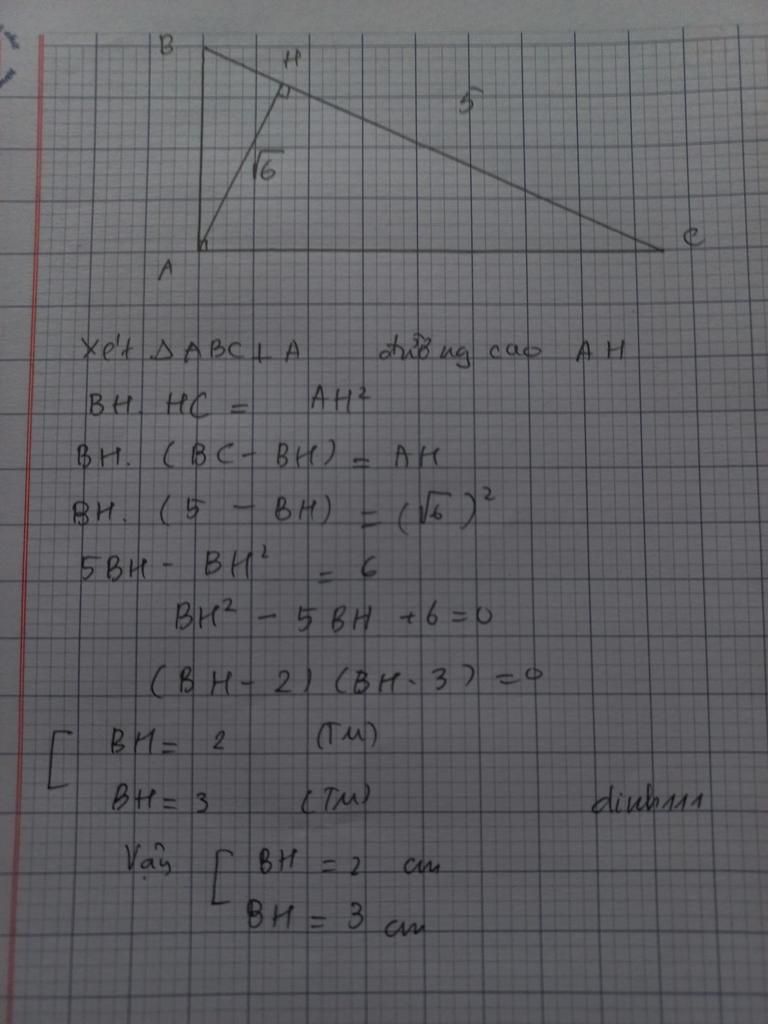 B
H
5
√6
A
C
Xét Δ ABC ⊥ A đường cao AH
BH. HC = AH²
BH. (BC - BH) = AH
BH. (5 - BH) = (√6)²
5BH - BH² = 6
BH² - 5BH + 6 = 0
(BH - 2) (BH - 3) = 0
[ BH = 2 (TM)
BH = 3 (TM)
dinh111
Vậy [ BH = 2 cm
BH = 3 cm